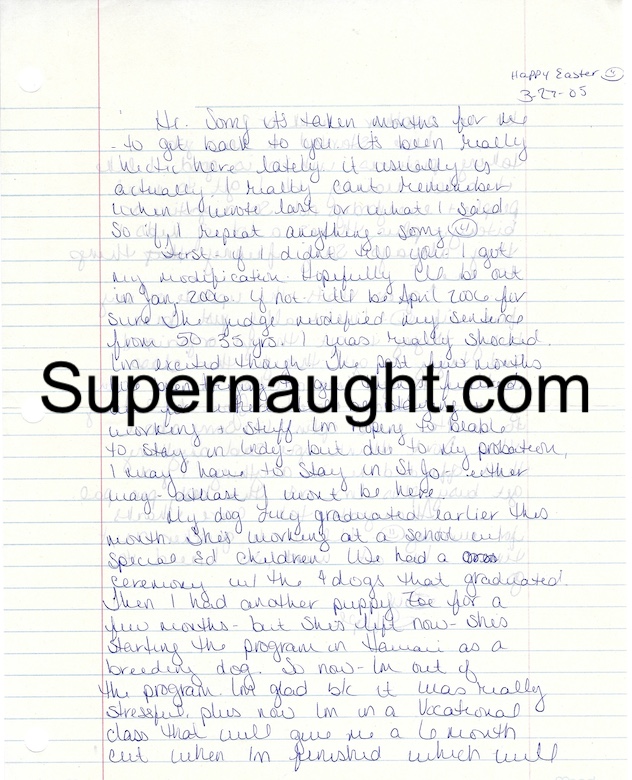 Happy Easter ☺
3-27-05
Hi. Sorry its taken months for me
- to get back to you. Its been really
hectic here lately it usually is
actually. I really cant remember
when I wrote last or what I said
so if I repeat anything - sorry ☺
First - if I didn't tell you. I got
my modification. Hopefully I'll be out
in Jan. 2006 if not it'll be April 2006 for
sure. The judge modified my sentence
from 50-35 yrs. I was really shocked.
I'm excited though. The few months
Supernaught.com
working + stuff. Im hoping to beable
to stay in Indy - but due to my probation,
I may have to stay in St Jo - either
way - atleast I wont be here.
My dog graduated earlier this
month. She's working at a school w/
special Ed children. We had a
ceremony w/ the 4 dogs that graduated.
Then I had another puppy Zoe for a
few months - but she's left now - she's
starting the program in Hawaii as a
breeding dog. So now - Im out of
the program. Im glad b/c it was really
stressful, plus now Im in a Vocational
class that will give me a 6 month
cut when Im finished which will